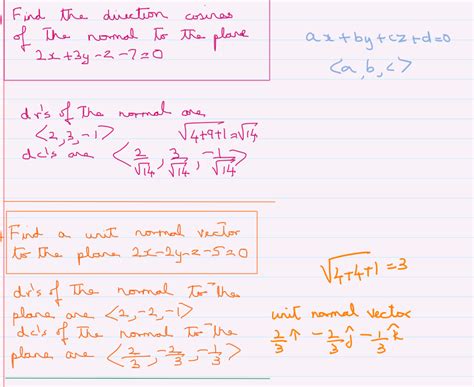 Find the direction cosines
of the normal to the plane
2x+3y-z-7=0
ax+by+cz+d=0
<a, b, c>
dr's of the normal are
<2, 3, -1>
√4+9+1=√14
dc's are <2/√14, 3/√14, -1/√14>
Find a unit normal vector
to the plane 2x-2y-z-5=0
√4+4+1=3
dr's of the normal to the
plane are <2, -2, -1>
dc's of the normal to the
plane are <2/3, -2/3, -1/3>
unit normal vector
2/3 î - 2/3 ĵ - 1/3 k̂